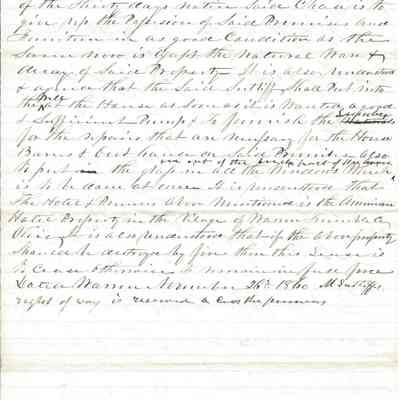 of the thirty days notice Said Chase is to
give up the Possession of Said Premises and
Furniture in as good Condition as the
Same now is Except the Natural Ware &
decay of Said Property It is also understood
& agreed that the Said Sutliff Shall Put into
the Well at the House as Soon as it is Wanted a good
& Sufficient Pump & to furnish the Lumber
for the repairs that are necessary for the House
Barns & Out houses on Said Premises also
to put in the glass in all the Windows Which
is to be done at once It is understood that
The Hotel & Premises Above Mentioned is the American
Hotel Property in the Village of Warren Trumbull Co
Ohio It is also understood that if the above property
Should be destroyed by fire then this Lease is
To Cease otherwise to remain in full force
Dated Warren November 26th 1860 M Sutliff
right of way is reserved across the premises